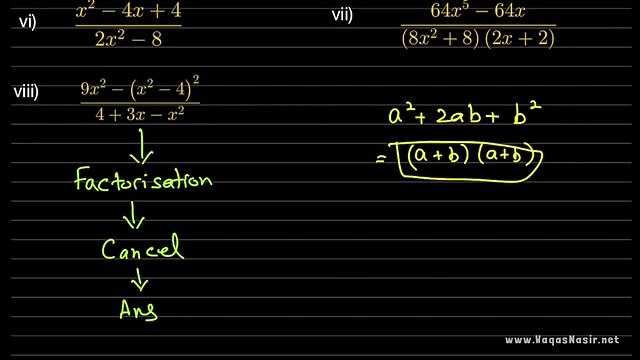 vi) \frac{x^2 - 4x + 4}{2x^2 - 8}
vii) \frac{64x^5 - 64x}{(8x^2 + 8)(2x + 2)}
viii) \frac{9x^2 - (x^2 - 4)^2}{4 + 3x - x^2}
a^2 + 2ab + b^2
= (a + b) (a + b)
Factorisation
Cancel
Ans
www.WaqasNasir.net